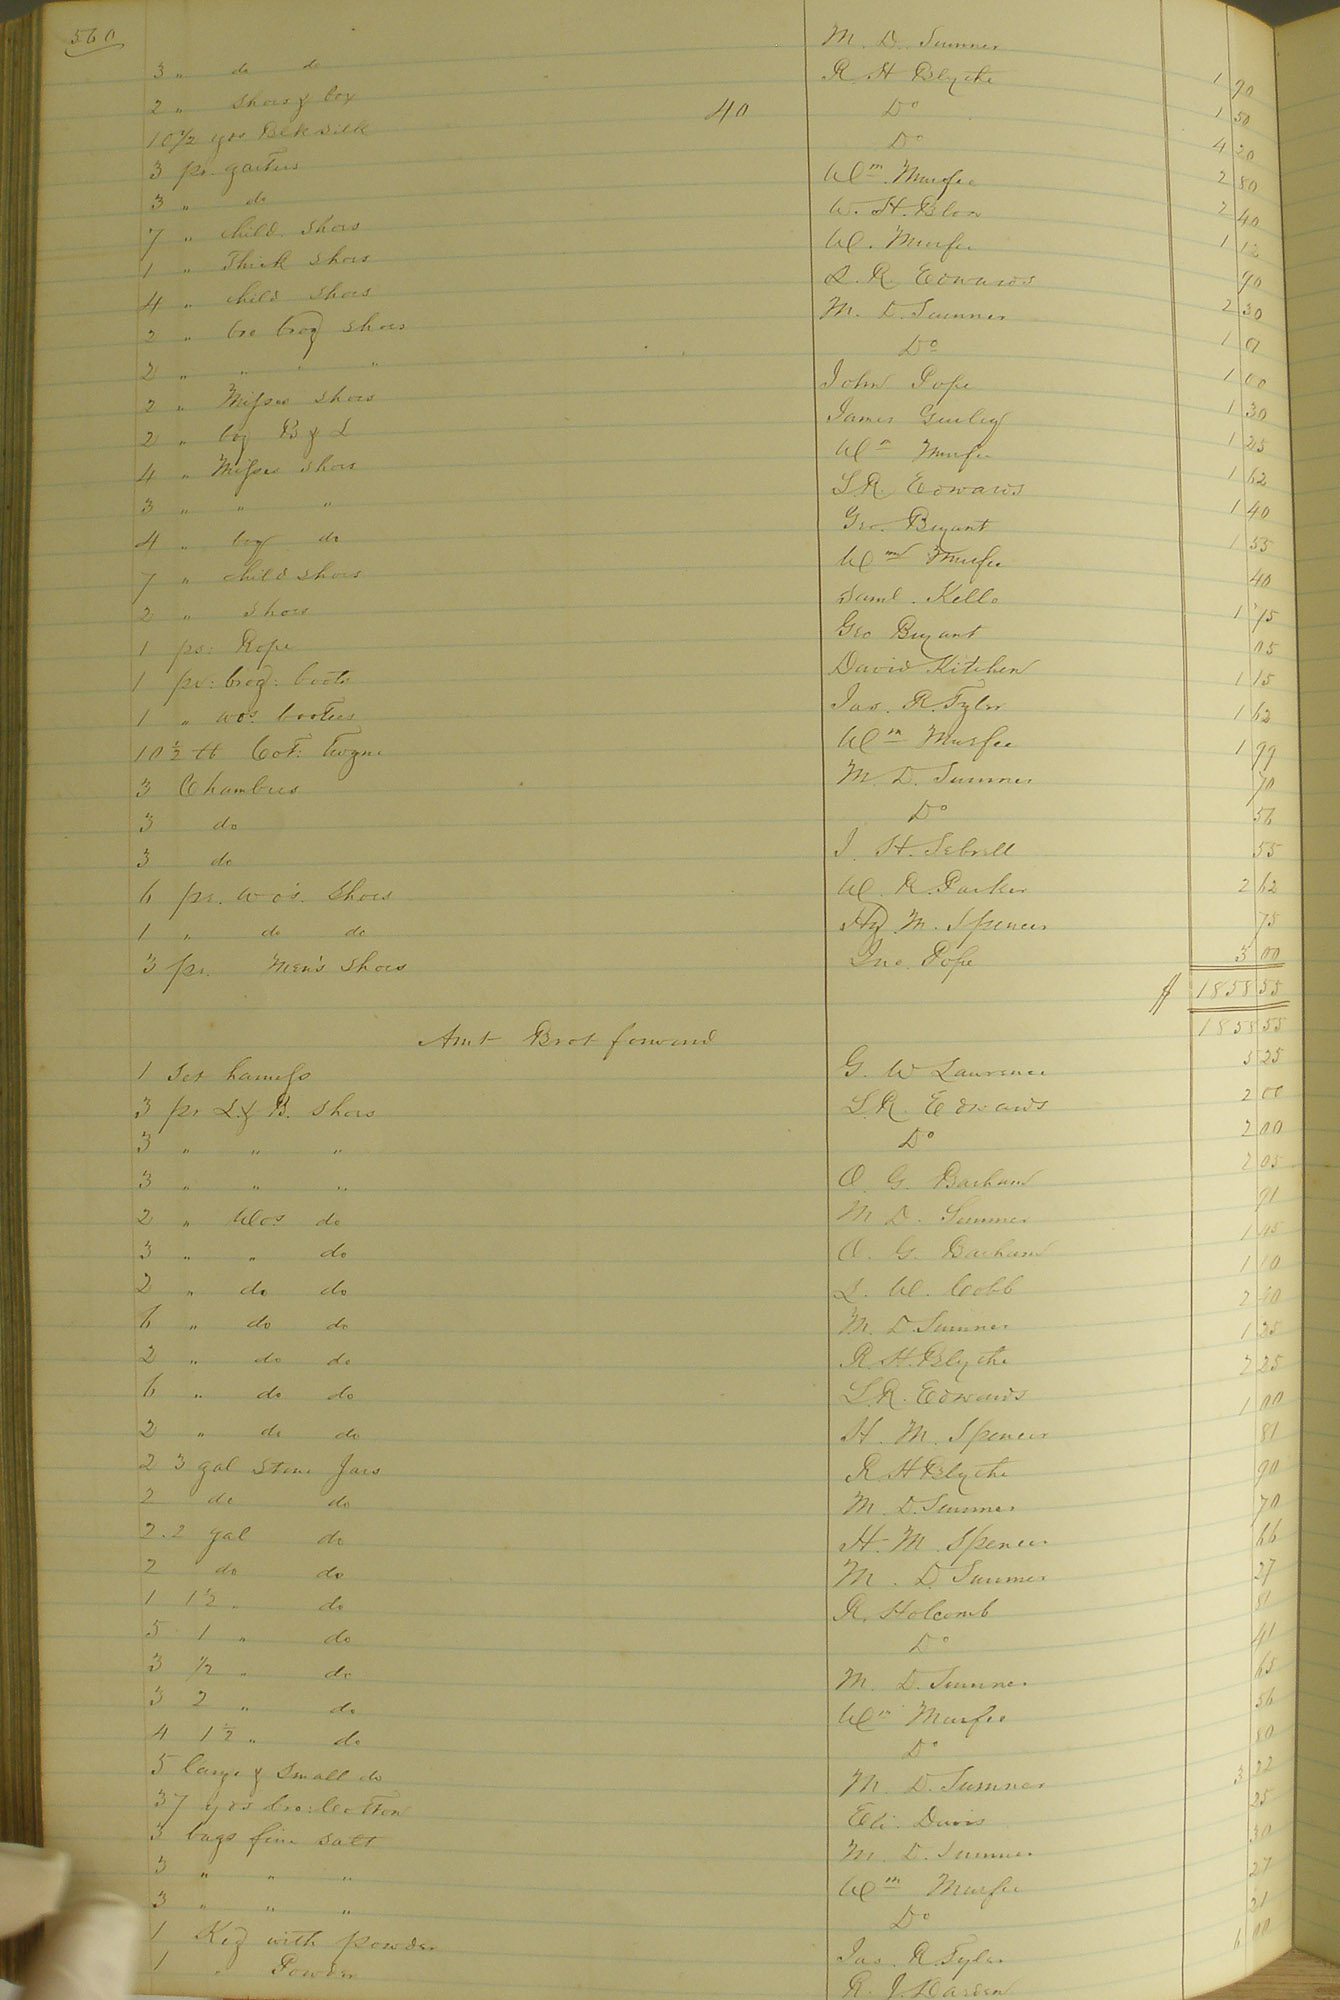 560
3 " do do M. D. Sumner
2 " Shoes & boy R H Blythe 1 90
10 1/2 yds Blk Silk 40 Do 1 50
3 pr. gaiters Do 4 20
3 " do Wm. Murfee 2 80
7 " child Shoes W. H. Blow 2 40
1 " Thick Shoes W. Murfee 1 12
4 " child Shoes L. R. Edwards 90
2 " bro brog Shoes M. D. Sumner 2 30
2 " " " Do 1 01
2 " Misses Shoes John Pope 1 00
2 " boy B & L James Gurley 1 30
4 " Misses Shoes Wm Murfee 1 25
3 " " " L.R. Edwards 1 62
4 " boy do Geo. Bryant 1 40
7 " child shoes Wm Murfee 1 55
2 " Shoes Saml. Kello 40
1 ps: Rope Geo Bryant 1 75
1 pr: brog: boots David Kitchen 05
1 " wos. bootees Jas. R. Tyler 1 15
10 1/2 lb Cot: Wm Murfee 1 62
3 Chambers M. D. Sumner 1 99
3 do Do 70
3 do J. H. Sebrell 56
6 pr. wo's. Shoes W. R. Parker 55
1 " do do Hy. M. Spencer 2 62
3 pr. Men's Shoes Jno. Pope 75
3 00
$ 1858 55
Amt Brot forward 1858 55
1 Set harness G. W Lawrence 5 25
3 pr L. & B. Shoes L.R. Edwards 2 00
3 " " " Do 2 00
3 " " " O. G. Barham 2 05
2 " Wos do M D. Sumner 91
3 " " do O. G. Barham 1 05
2 " do do L. W. Cobb 1 10
6 " do do M. D Sumner 2 40
2 " do do R. H. Blythe 1 25
6 " do do L.R. Edwards 2 25
2 " do do H. M. Spencer 1 00
2 3 gal Stone Jars R H Blythe 81
2 do do M. D. Sumner 90
2. 2 gal do H. M. Spencer 70
2 do do M. D. Sumner 66
1 1 1/2 " do R. Holcomb 27
5 1 " do Do 81
3 1/2 " do M. D. Sumner 41
3 2 " do Wm Murfee 65
4 1 1/2 " do Do 56
5 large & Small do M. D. Sumner 80
37 yds bro: Cotton Eli Davis 3 22
3 bags fine Salt M. D. Sumner 25
3 " " " Wm Murfee 30
3 " " " Do 27
1 Keg with powder Jas. R. Tyler 21
1 " Powder R. J. Darden 6 00